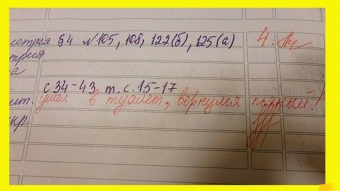 етрия §4 №105, 108, 122(б), 125(а) 4
трия
а
с 34-43 т.с. 15-17
ит. ушел в туалет, вернулся пьяный!
кр.